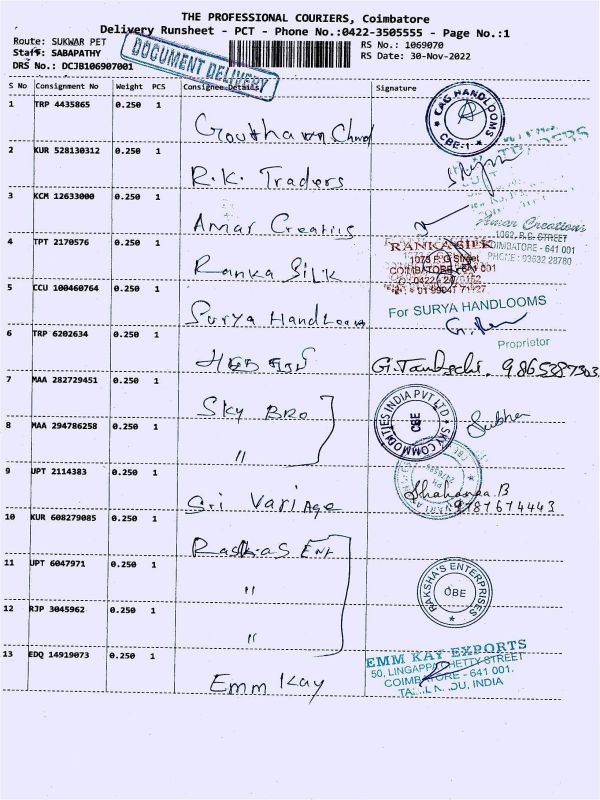 THE PROFESSIONAL COURIERS, Coimbatore
Delivery Runsheet - PCT - Phone No.:0422-3505555 - Page No.:1
Route: SUKWAR PET
Staff: SABAPATHY
DRS No.: DCJB106907001
DOCUMENT DELIVERY
RS No.: 1069070
RS Date: 30-Nov-2022
S No Consignment No Weight PCS Consignee Details Signature
1 TRP 4435865 0.250 1
CAG HANDLOOMS CBE-1
2 KUR 528130312 0.250 1
R.K. Traders
3 KCM 12633000 0.250 1
Amar Creations
1062, R.G. STREET
COIMBATORE - 641 001
PHONE : 93632 28780
4 TPT 2170576 0.250 1
Ranka Silk
RANKA SILK
1073 R G Street
COIMBATORE 641 001
5 CCU 100460764 0.250 1
Surya Handlooms
For SURYA HANDLOOMS
Proprietor
6 TRP 6202634 0.250 1
7 MAA 282729451 0.250 1
Sky Bro
SKY COMMODITIES INDIA PVT LTD CBE
8 MAA 294786258 0.250 1
"
9 UPT 2114383 0.250 1
Sri Vari Age
Shahanaa.B
9787674443
10 KUR 608279085 0.250 1
11 UPT 6047971 0.250 1
"
RAKSHA'S ENTERPRISES CBE
12 RJP 3045962 0.250 1
"
13 EDQ 14919073 0.250 1
Emm Kay
EMM KAY EXPORTS
50, LINGAPPA CHETTY STREET
COIMBATORE - 641 001.
INDIA